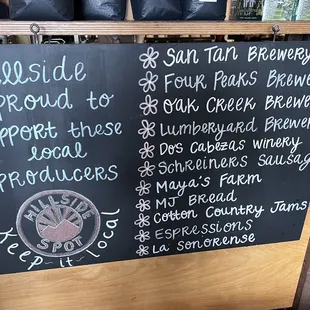 llside
proud to
pport these
local
producers
HILLSIDE
SPOT
keep-it-local
San Tan Brewery
Four Peaks Brewe
Oak Creek Brewe
Lumberyard Brewer
Dos Cabezas winery
Schreiners Sausag
Maya's Farm
MJ Bread
Cotton Country Jams
Espressions
La Sonorense